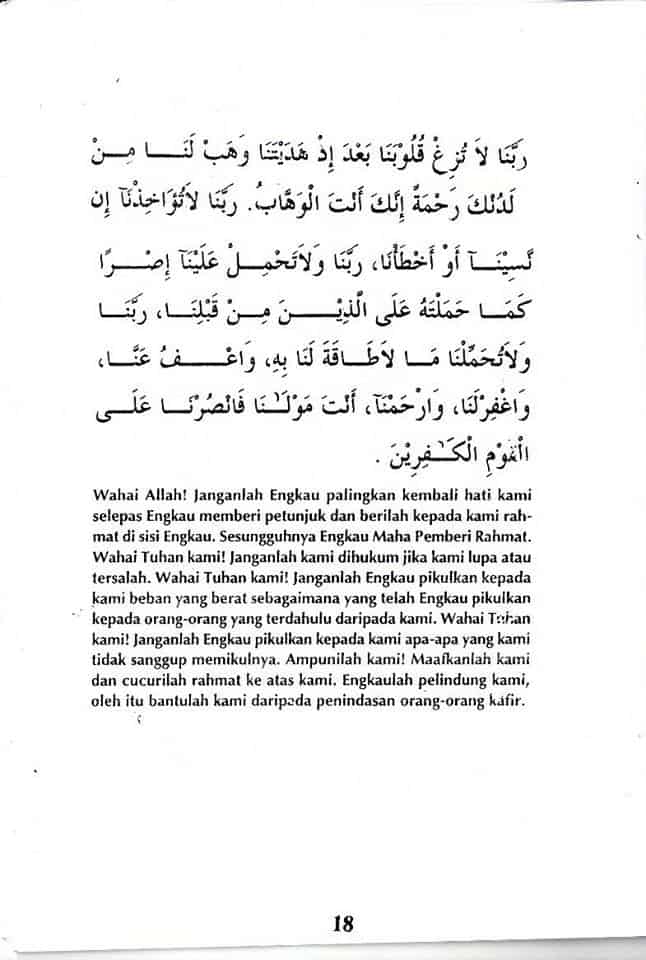 رَبَّنَا لاَ تُزِغْ قُلُوْبَنَا بَعْدَ إِذْ هَدَيْتَنَا وَهَبْ لَنَـــا مِـــنْ
لَدُنْكَ رَحْمَةً إِنَّكَ أَنْتَ الْوَهَّابُ. رَبَّنَا لاَتُؤَاخِذْنَآ إِن
نَّسِيْنَـــآ أَوْ أَخْطَأْنَا، رَبَّنَا وَلاَتَحْمِـــلْ عَلَيْنَآ إِصْـــرًا
كَمَـــا حَمَلْتَهُ عَلَى الَّذِيْـــــنَ مِـــنْ قَبْلِنَـــا، رَبَّنَـــا
وَلاَتُحَمِّلْنَا مَـــا لاَطَاقَةَ لَنَا بِهِ، وَاعْـــــفُ عَنَّـــا،
وَاغْفِرْلَنَا، وَارْحَمْنَآ، أَنْتَ مَوْلَـٰنَا فَانْصُرْنَـــا عَلَـــى
الْقَوْمِ الْكَـــٰفِرِيْنَ .
Wahai Allah! Janganlah Engkau palingkan kembali hati kami
selepas Engkau memberi petunjuk dan berilah kepada kami rah-
mat di sisi Engkau. Sesungguhnya Engkau Maha Pemberi Rahmat.
Wahai Tuhan kami! Janganlah kami dihukum jika kami lupa atau
tersalah. Wahai Tuhan kami! Janganlah Engkau pikulkan kepada
kami beban yang berat sebagaimana yang telah Engkau pikulkan
kepada orang-orang yang terdahulu daripada kami. Wahai Tuhan
kami! Janganlah Engkau pikulkan kepada kami apa-apa yang kami
tidak sanggup memikulnya. Ampunilah kami! Maafkanlah kami
dan cucurilah rahmat ke atas kami. Engkaulah pelindung kami,
oleh itu bantulah kami daripada penindasan orang-orang kafir.
18